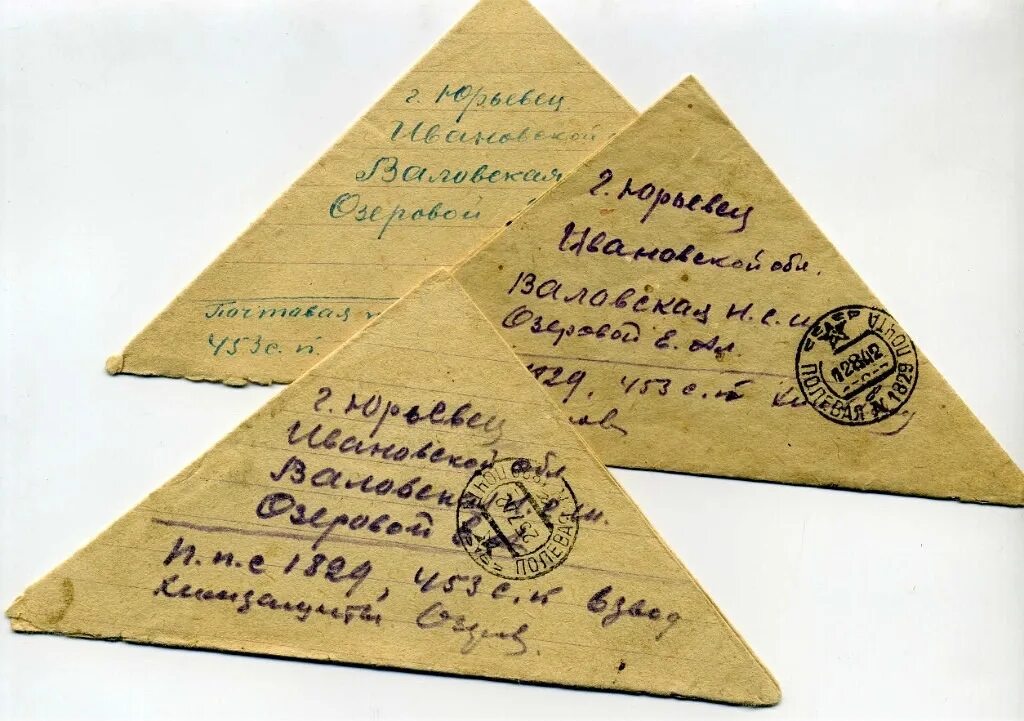 г. Юрьевец
Ивановской
Валовская
Озеровой
Почтовая
453 с. п.
г. Юрьевец
Ивановской обл.
Валовская н.с.ш.
Озеровой Е. Ал.
1829, 453 с.п
ПОЛЕВАЯ ПОЧТА
№ 1829
12842
г. Юрьевец
Ивановской обл
Валовская н.с.ш.
Озеровой Е
П.п.с 1829, 453 с.п взвод
химзащиты Озеров.
ПОЛЕВАЯ